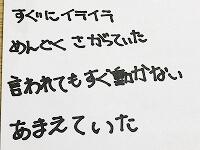 すぐにイライラ
めんどくさがっていた
言われてもすぐ動かない
あまえていた